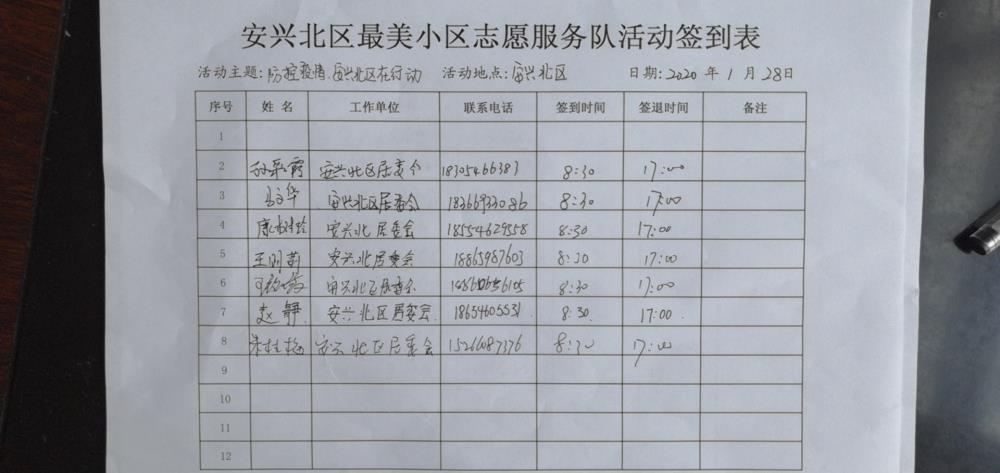 安兴北区最美小区志愿服务队活动签到表
活动主题:防控疫情.安兴北区在行动 活动地点:安兴北区 日期:2020年1月28日
序号 姓名 工作单位 联系电话 签到时间 签退时间 备注
1
2 安兴北区居委会 18305466383 8:30 17:00
3 安兴北区居委会 18366933086 8:30 17:00
4 安兴北居委会 18554629558 8:30 17:00
5 王明莉 安兴北居委会 18865987603 8:30 17:00
6 安兴北区居委会 8:30 17:00
7 赵静 安兴北区居委会. 18654605531 8:30. 17:00.
8 朱桂梅 安兴北区居委会 15266087376 8:30 17:00
9
10
11
12